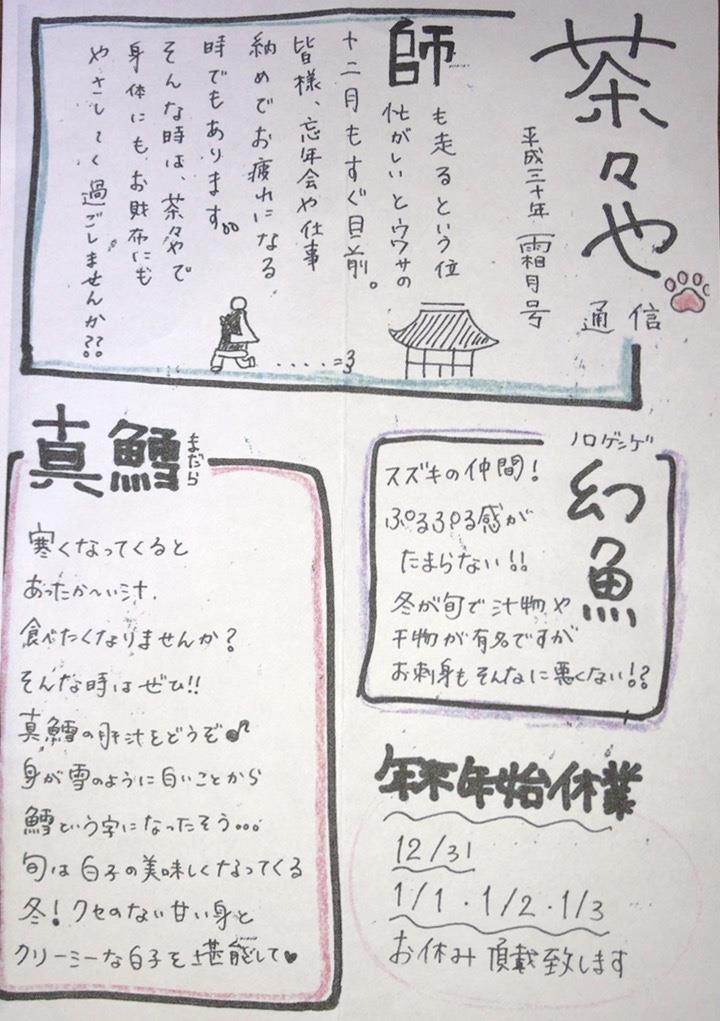 茶々や
通信
平成三十年 霜月号
師も走るという位
忙がしいとウワサの
十二月もすぐ目前。
皆様、忘年会や仕事
納めでお疲れになる
時でもあります。
そんな時は、茶々やで
身体にもお財布にも
やさしく過ごしませんか??
真鱈
まだら
寒くなってくると
あったか〜い汁、
食べたくなりませんか?
そんな時はぜひ!!
真鱈の肝汁をどうぞ♪
身が雪のように白いことから
鱈という字になったそう...
旬は白子の美味しくなってくる
冬!クセのない甘い身と
クリーミーな白子を堪能して♥
ノロゲンゲ
幻魚
スズキの仲間!
ぷるぷる感が
たまらない!!
冬が旬で汁物や
干物が有名ですが
お刺身もそんなに悪くない!?
年末年始休業
12/31
1/1・1/2・1/3
お休み頂戴致します